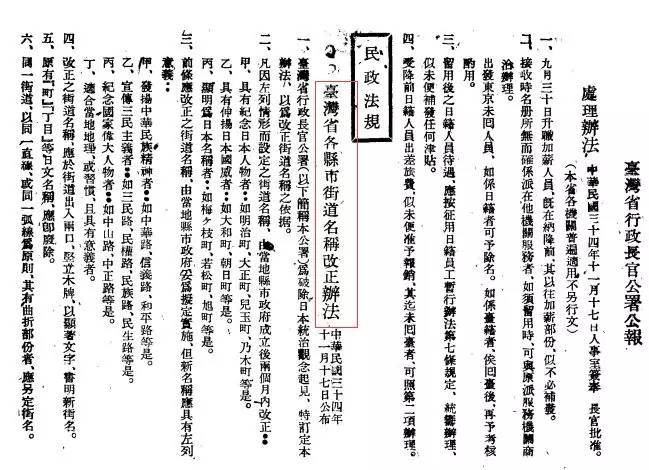 臺灣省行政長官公署公報
處理辦法
中華民國三十四年十一月十七日人事室簽奉 長官批准。
(本省各機關普遍適用不另行文)
一、九月三十日升職加薪人員、旣在納降前、其以往加薪部份、似不必補發。
二、接收時名册所無而確係派在他機關服務者、如須留用時、可與原派服務機關商
洽辦理。
出發東京未囘人員、如係日籍者可予除名。如係臺籍者、俟囘臺後、再予考核
酌用。
三、留用後之日籍人員待遇、應按征用日籍員工暫行辦法第七條規定、統籌辦理、
似未便補發任何津貼。
四、受降前日籍人員出差旅費、似未便准予報銷、其迄未囘臺者、可照第二項辦理。
民政法規
臺灣省各縣市街道名稱改正辦法
中華民國三十四年
十一月十七日公布
一、臺灣省行政長官公署(以下簡稱本公署)爲破除日本統治觀念起見、特訂定本
辦法、以爲改正街道名稱之依據。
二、凡因左列情形而設定之街道名稱、由當地縣市政府成立後兩個月內改正:
甲、具有紀念日本人物者:如明治町、大正町、兒玉町、乃木町等是。
乙、具有伸揚日本國威者:如大和町、朝日町等是。
丙、顯明爲日本名稱者:如梅ケ枝町、若松町、旭町等是。
三、前條應改正之街道名稱、由當地縣市政府妥爲擬定實施、但新名稱應具有左列
意義:
甲、發揚中華民族精神者:如中華路、信義路、和平路等是。
乙、宣傳三民主義者:如三民路、民權路、民族路、民生路等是。
丙、紀念國家偉大人物者:如中山路、中正路等是。
丁、適合當地地理、或習慣、且具有意義者。
四、改正之街道名稱、應於街道出入兩口、竪立木牌、以顯著文字、書明新街名。
五、原有「町」「丁目」等日文名稱、應卽廢除。
六、同一街道、以同一直線、或同一弧線爲原則、其有曲折部份者、應另定街名。